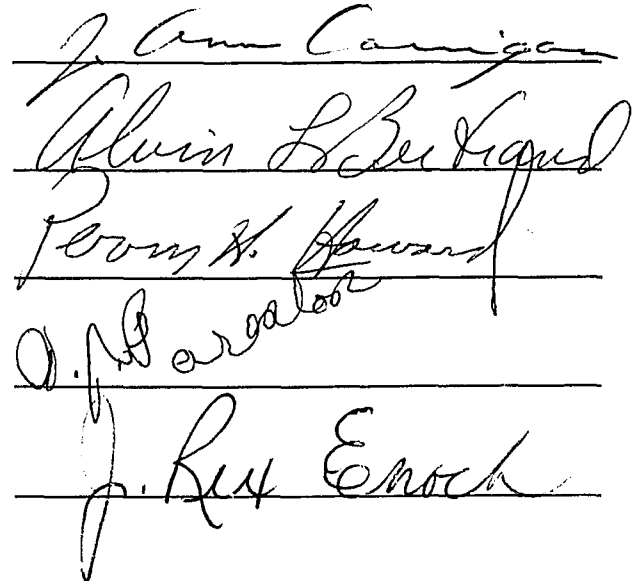 J. Ann Carrigan
Alvin L. Bertrand
Perry H. Howard
J. Rex Enoch